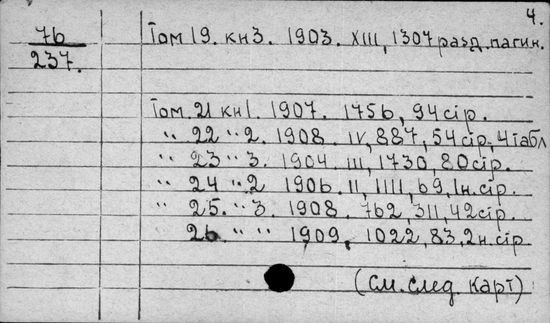 4.
76
237.
Том 19. кн 3. 1903. XIII, 1307 разд. пагин.
Том. 21 кн 1. 1907. 1756, 94 стр.
" 22 " 2. 1908. IV, 887, 54 стр, 4 табл
" 23 " 3. 1904 III, 1730, 80 стр.
" 24 " 2 1906. II, 1111, 69, 1н. стр.
" 25. " 3. 1908. 762, 311, 42 стр.
" 26. " " 1909, 1022, 83, 2н. стр
(См. след. карт)